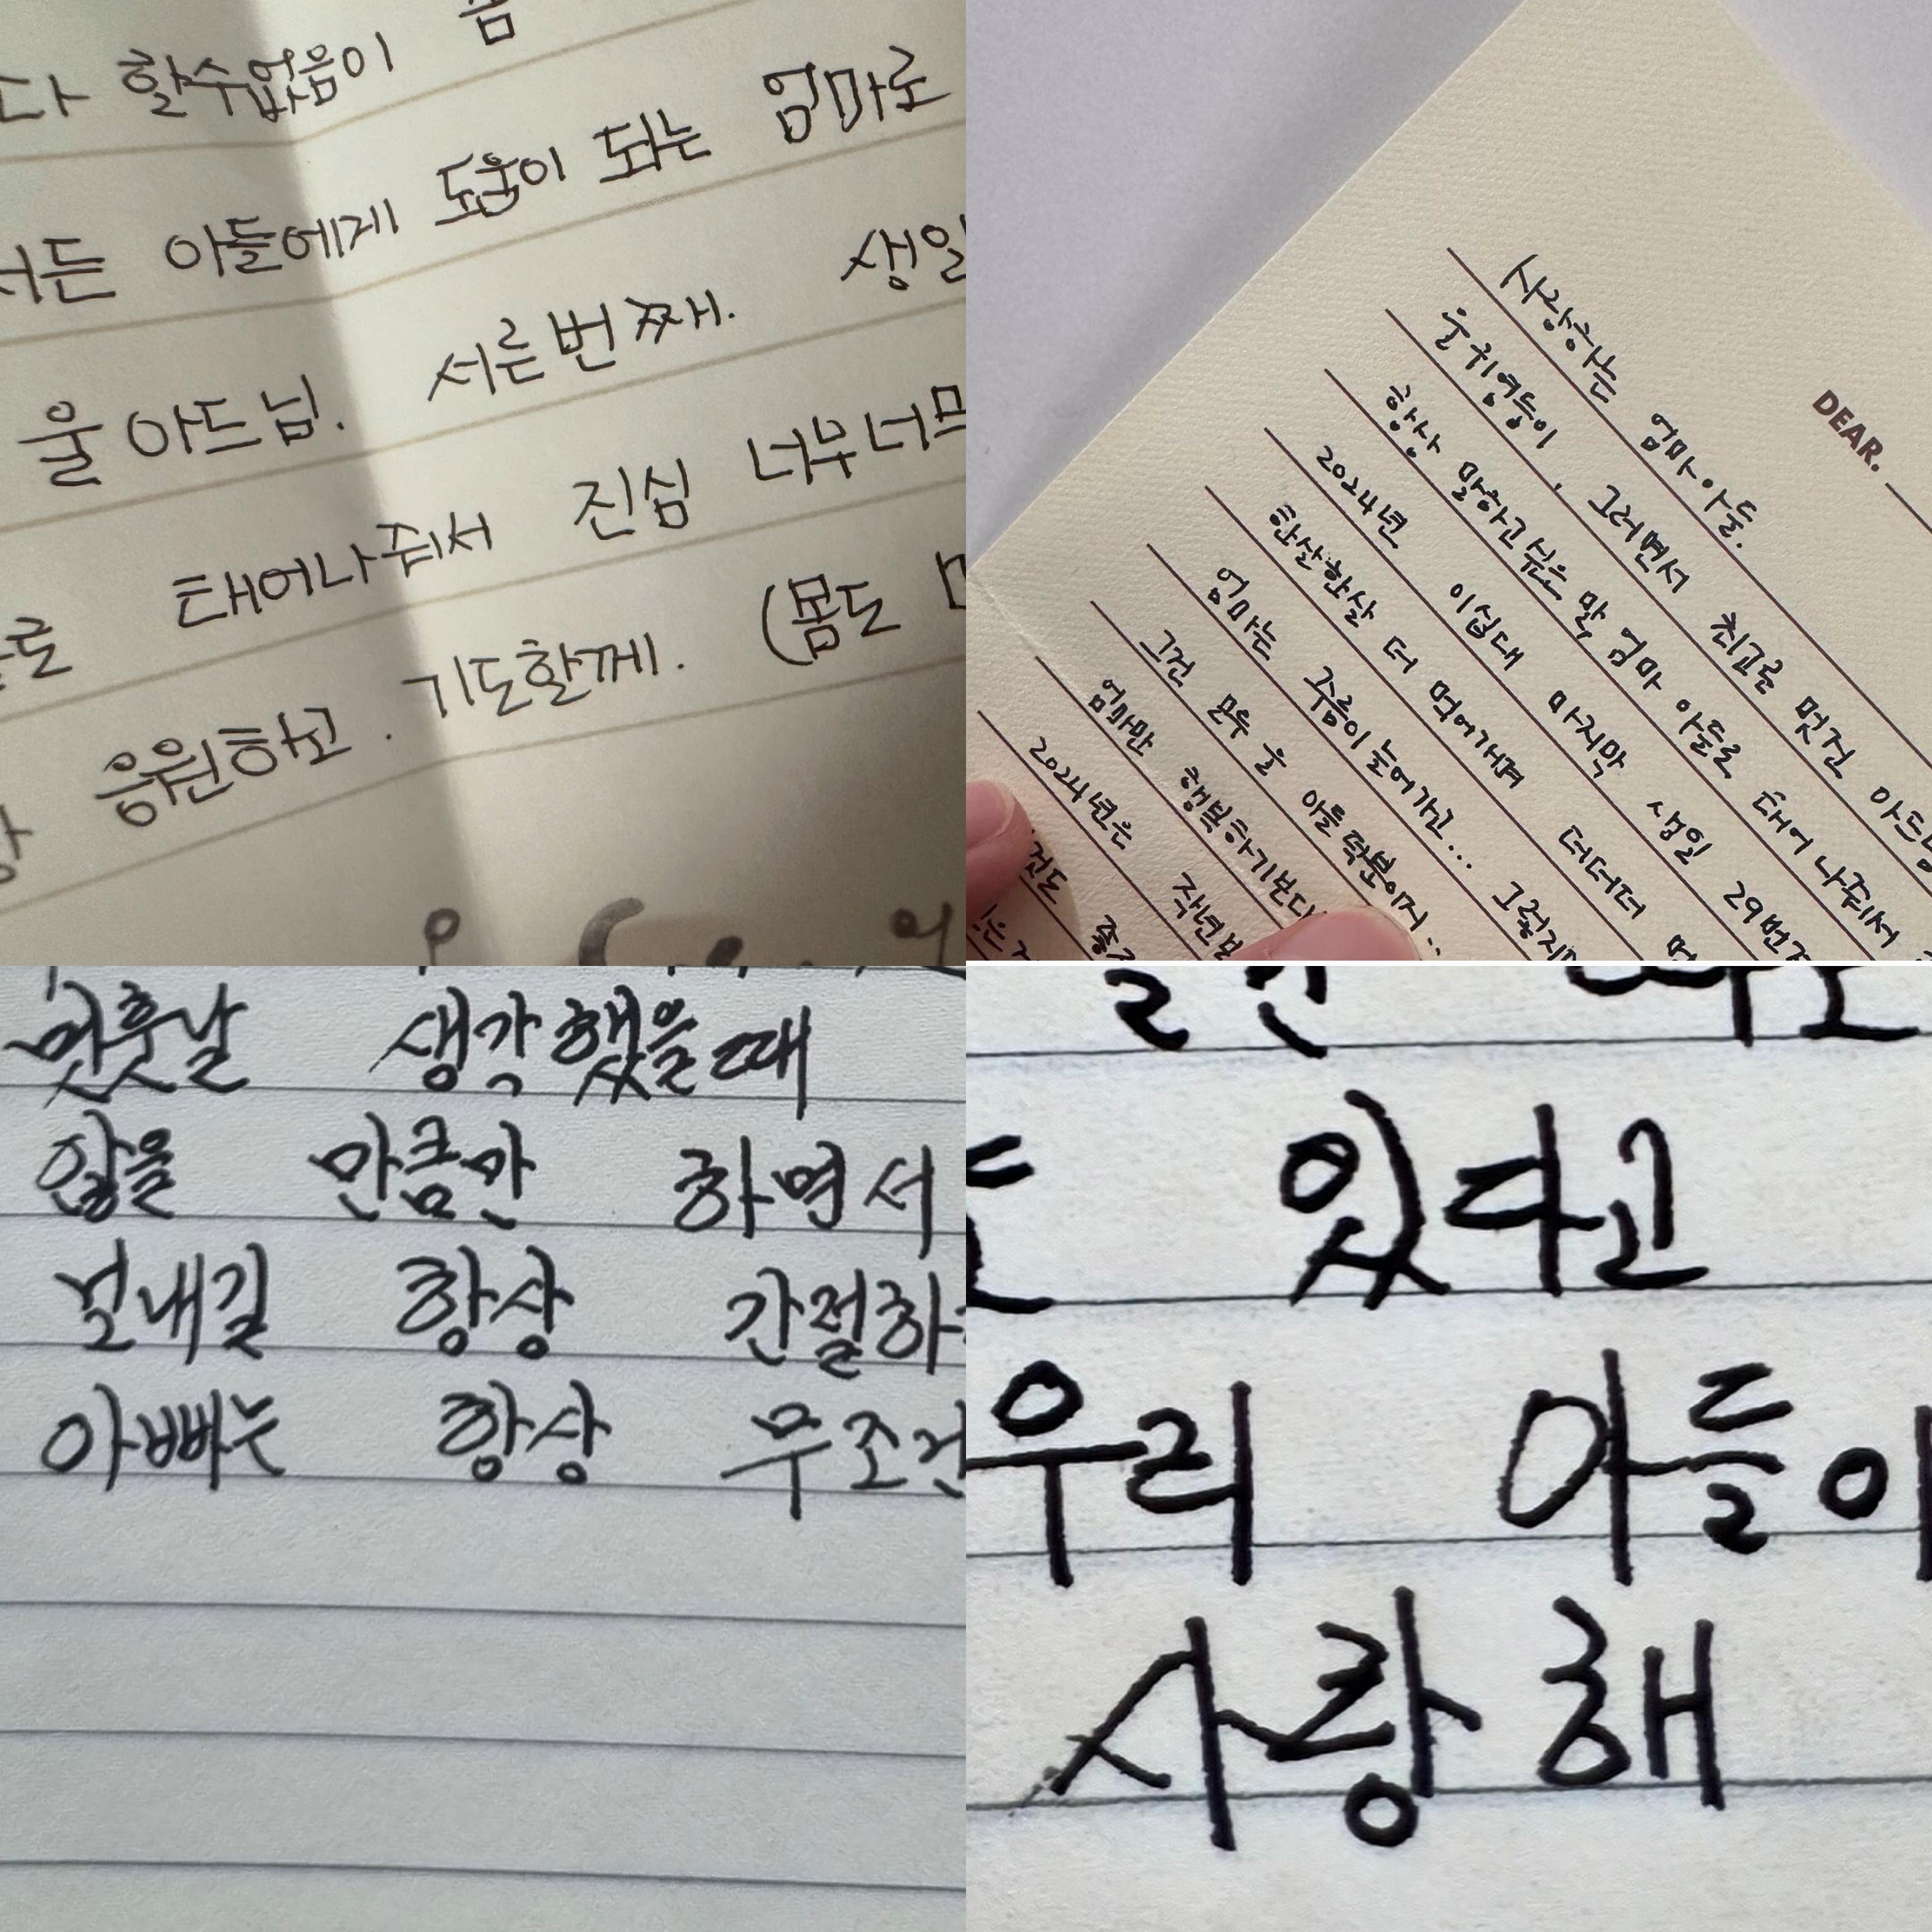 다 할수없음이 몸
서든 아들에게 도움이 되는 엄마로
생일
울 아드님. 서른번째.
로 태어나줘서 진심 너무너므
응원하고. 기도할께. (몸도
DEAR.
사랑하는 엄마 아들.
울 귀염둥이, 그러면서 친구로 멋진 아드님
항상 말하고 싶은 말 엄마 아들로 태어 나줘서
2024년 이십대 마지막 생일 29번
한살한살 더 먹어가며 더더더
엄마는 주름이 늘어가고... 그렇지
그건 모두 울 아들 덕분이지..
엄마만 행복하기보다
2024년은 작년보
것도
먼훗날 생각했을때
않을 만큼만 하면서
보내길 항상 간절하
아빠는 항상 무조건
있다고
우리 아들이
사랑해